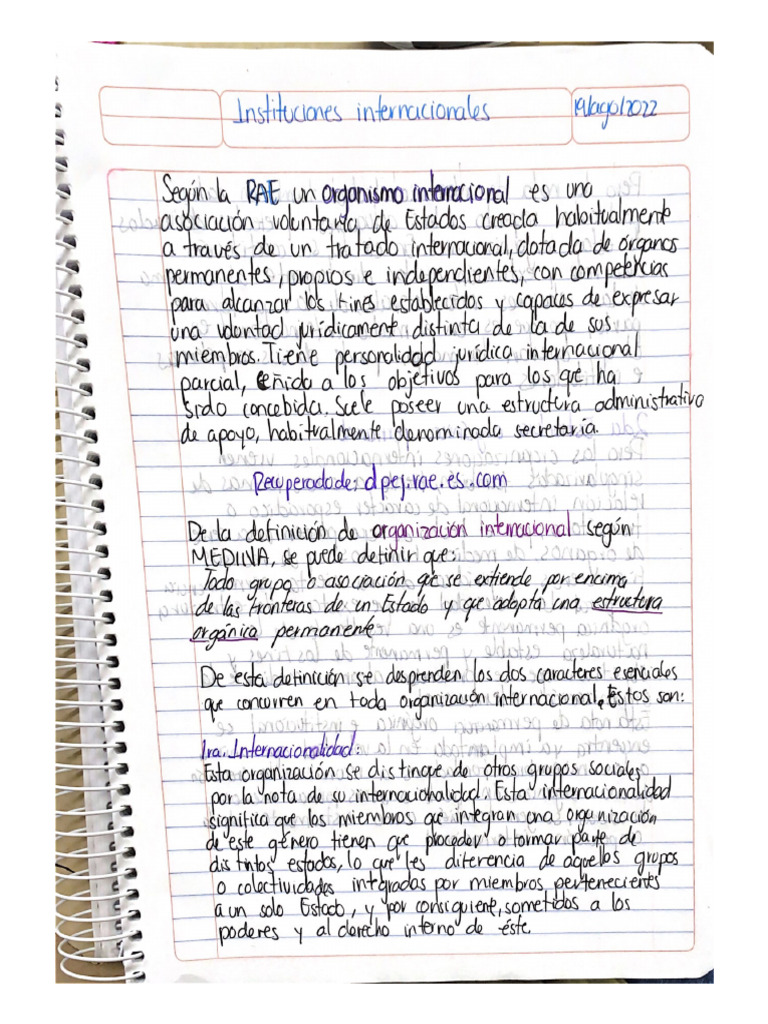 Instituciones internacionales
19/ago/2022
Según la RAE un organismo internacional es una
asociación voluntaria de Estados creada habitualmente
a través de un tratado internacional, dotada de órganos
permanentes, propios e independientes, con competencias
para alcanzar los fines establecidos y capaces de expresar
una voluntad jurídicament distinta de la de sus
miembros. Tiene personalidad jurídica internacional
parcial, ceñida a los objetivos para los que ha
sido concebida. Suele poseer una estructura administrativa
de apoyo, habitualmente denominada secretaría.
Recuperado de: dpej.rae.es.com
De la definición de organización internacional según
MEDINA, se puede definir que:
Todo grupo o asociación que se extiende por encima
de las fronteras de un Estado y que adopta una estructura
orgánica permanente
De esta definición se desprenden los dos caracteres esenciales
que concurren en toda organización internacional. Estos son:
1ra. Internacionalidad:
Esta organización se distingue de otros grupos sociales
por la nota de su internacionalidad. Esta internacionalidad
significa que los miembros que integran una organización
de este género tienen que proceder o formar parte de
distintos estados, lo que les diferencia de aquellos grupos
o colectividades integradas por miembros pertenecientes
a un solo Estado, y por consiguiente, sometidos a los
poderes y al derecho interno de éste.